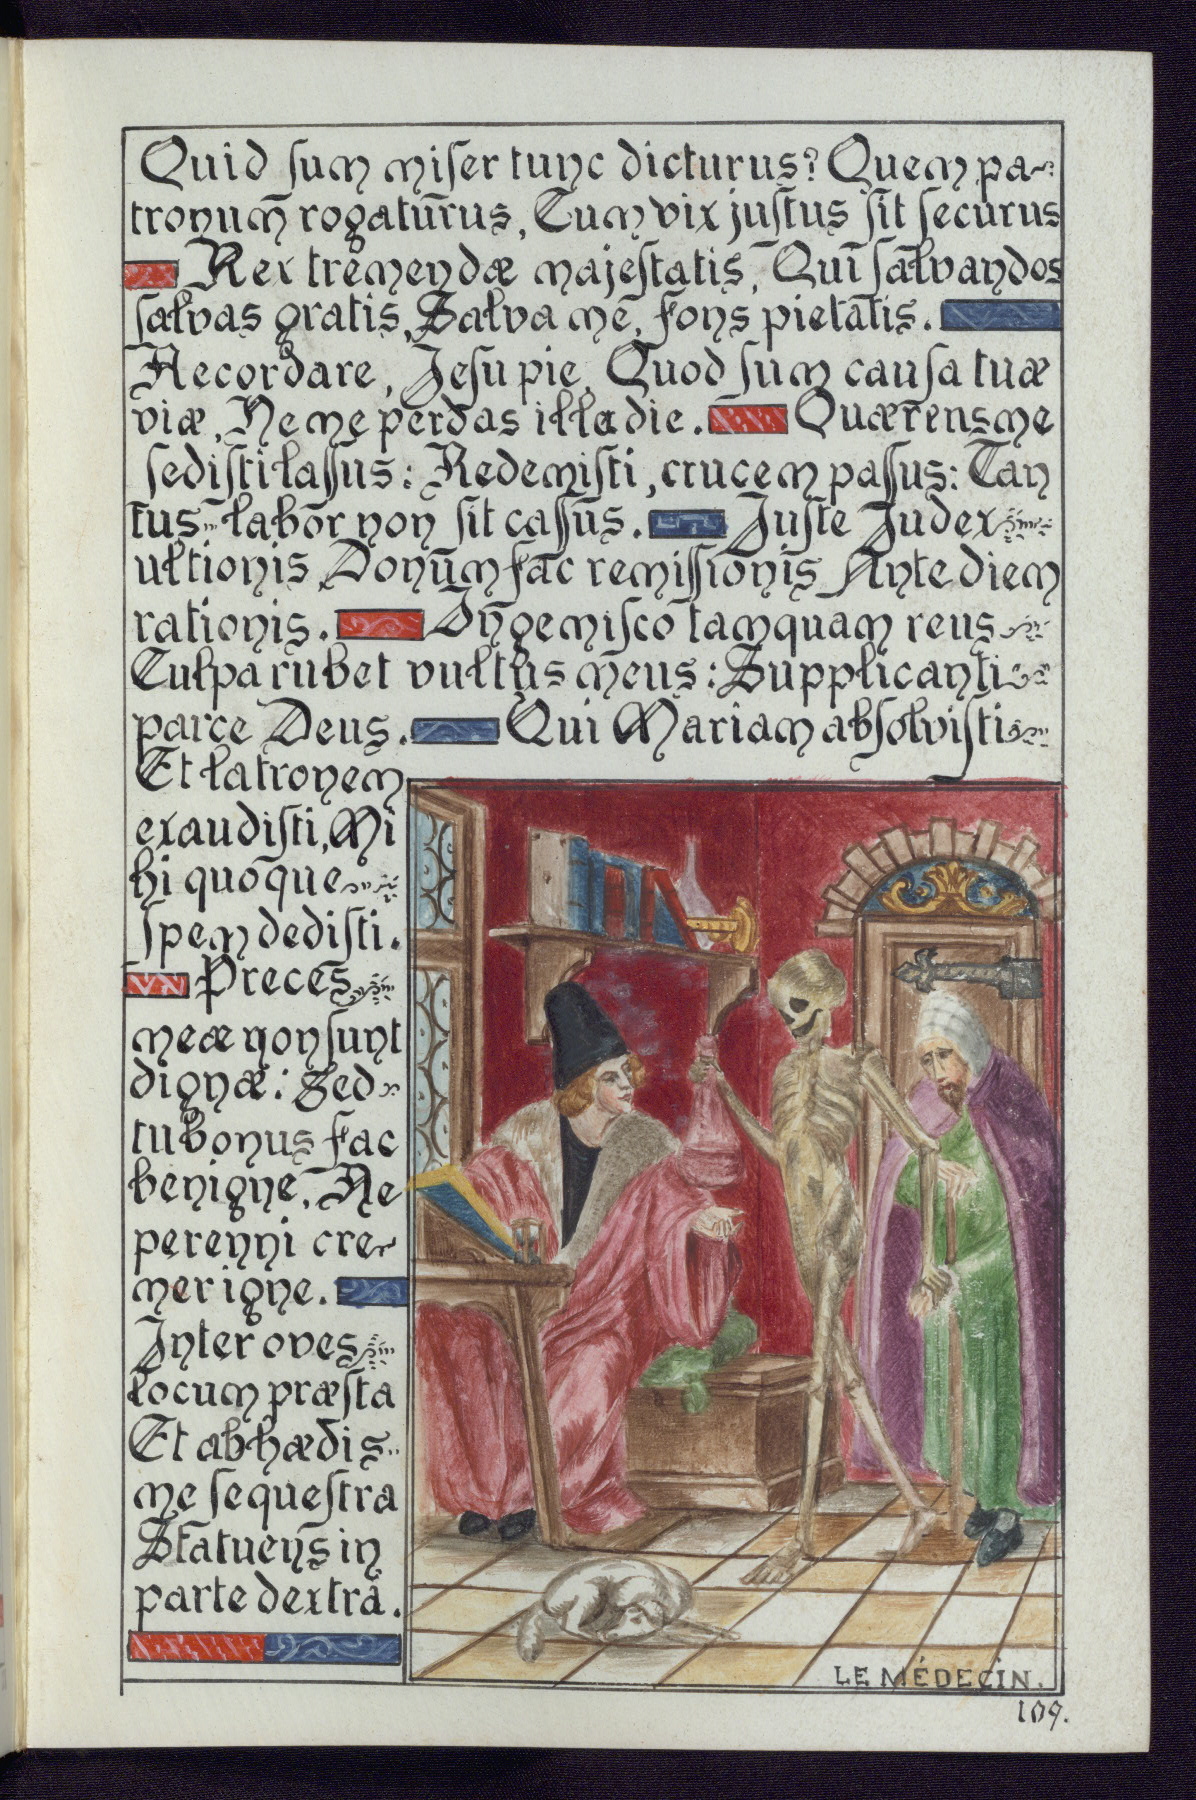 Quid sum miser tunc dicturus? Quem pa-
tronum rogaturus, Cum vix justus sit securus
Rex tremendæ majestatis, Qui salvandos
salvas gratis, Salva me, fons pietatis.
Recordare, Jesu pie, Quod sum causa tuæ
viæ, Ne me perdas illa die. Quærens me
sedisti lassus: Redemisti, crucem passus: Tan
tus labor non sit cassus. Juste Judex
ultionis Donum fac remissionis Ante diem
rationis. Ingemisco tamquam reus
Culpa rubet vultus meus: Supplicanti
parce Deus. Qui Mariam absolvisti
Et latronem
exaudisti, Mi
hi quoque
spem dedisti.
Preces
meæ non sunt
dignæ: Sed
tu bonus fac
benigne, Ne
perenni cre-
mer igne.
Inter oves
locum præsta
Et ab hædis
me sequestra
Statuens in
parte dextrâ.
LE MÉDECIN.
109.